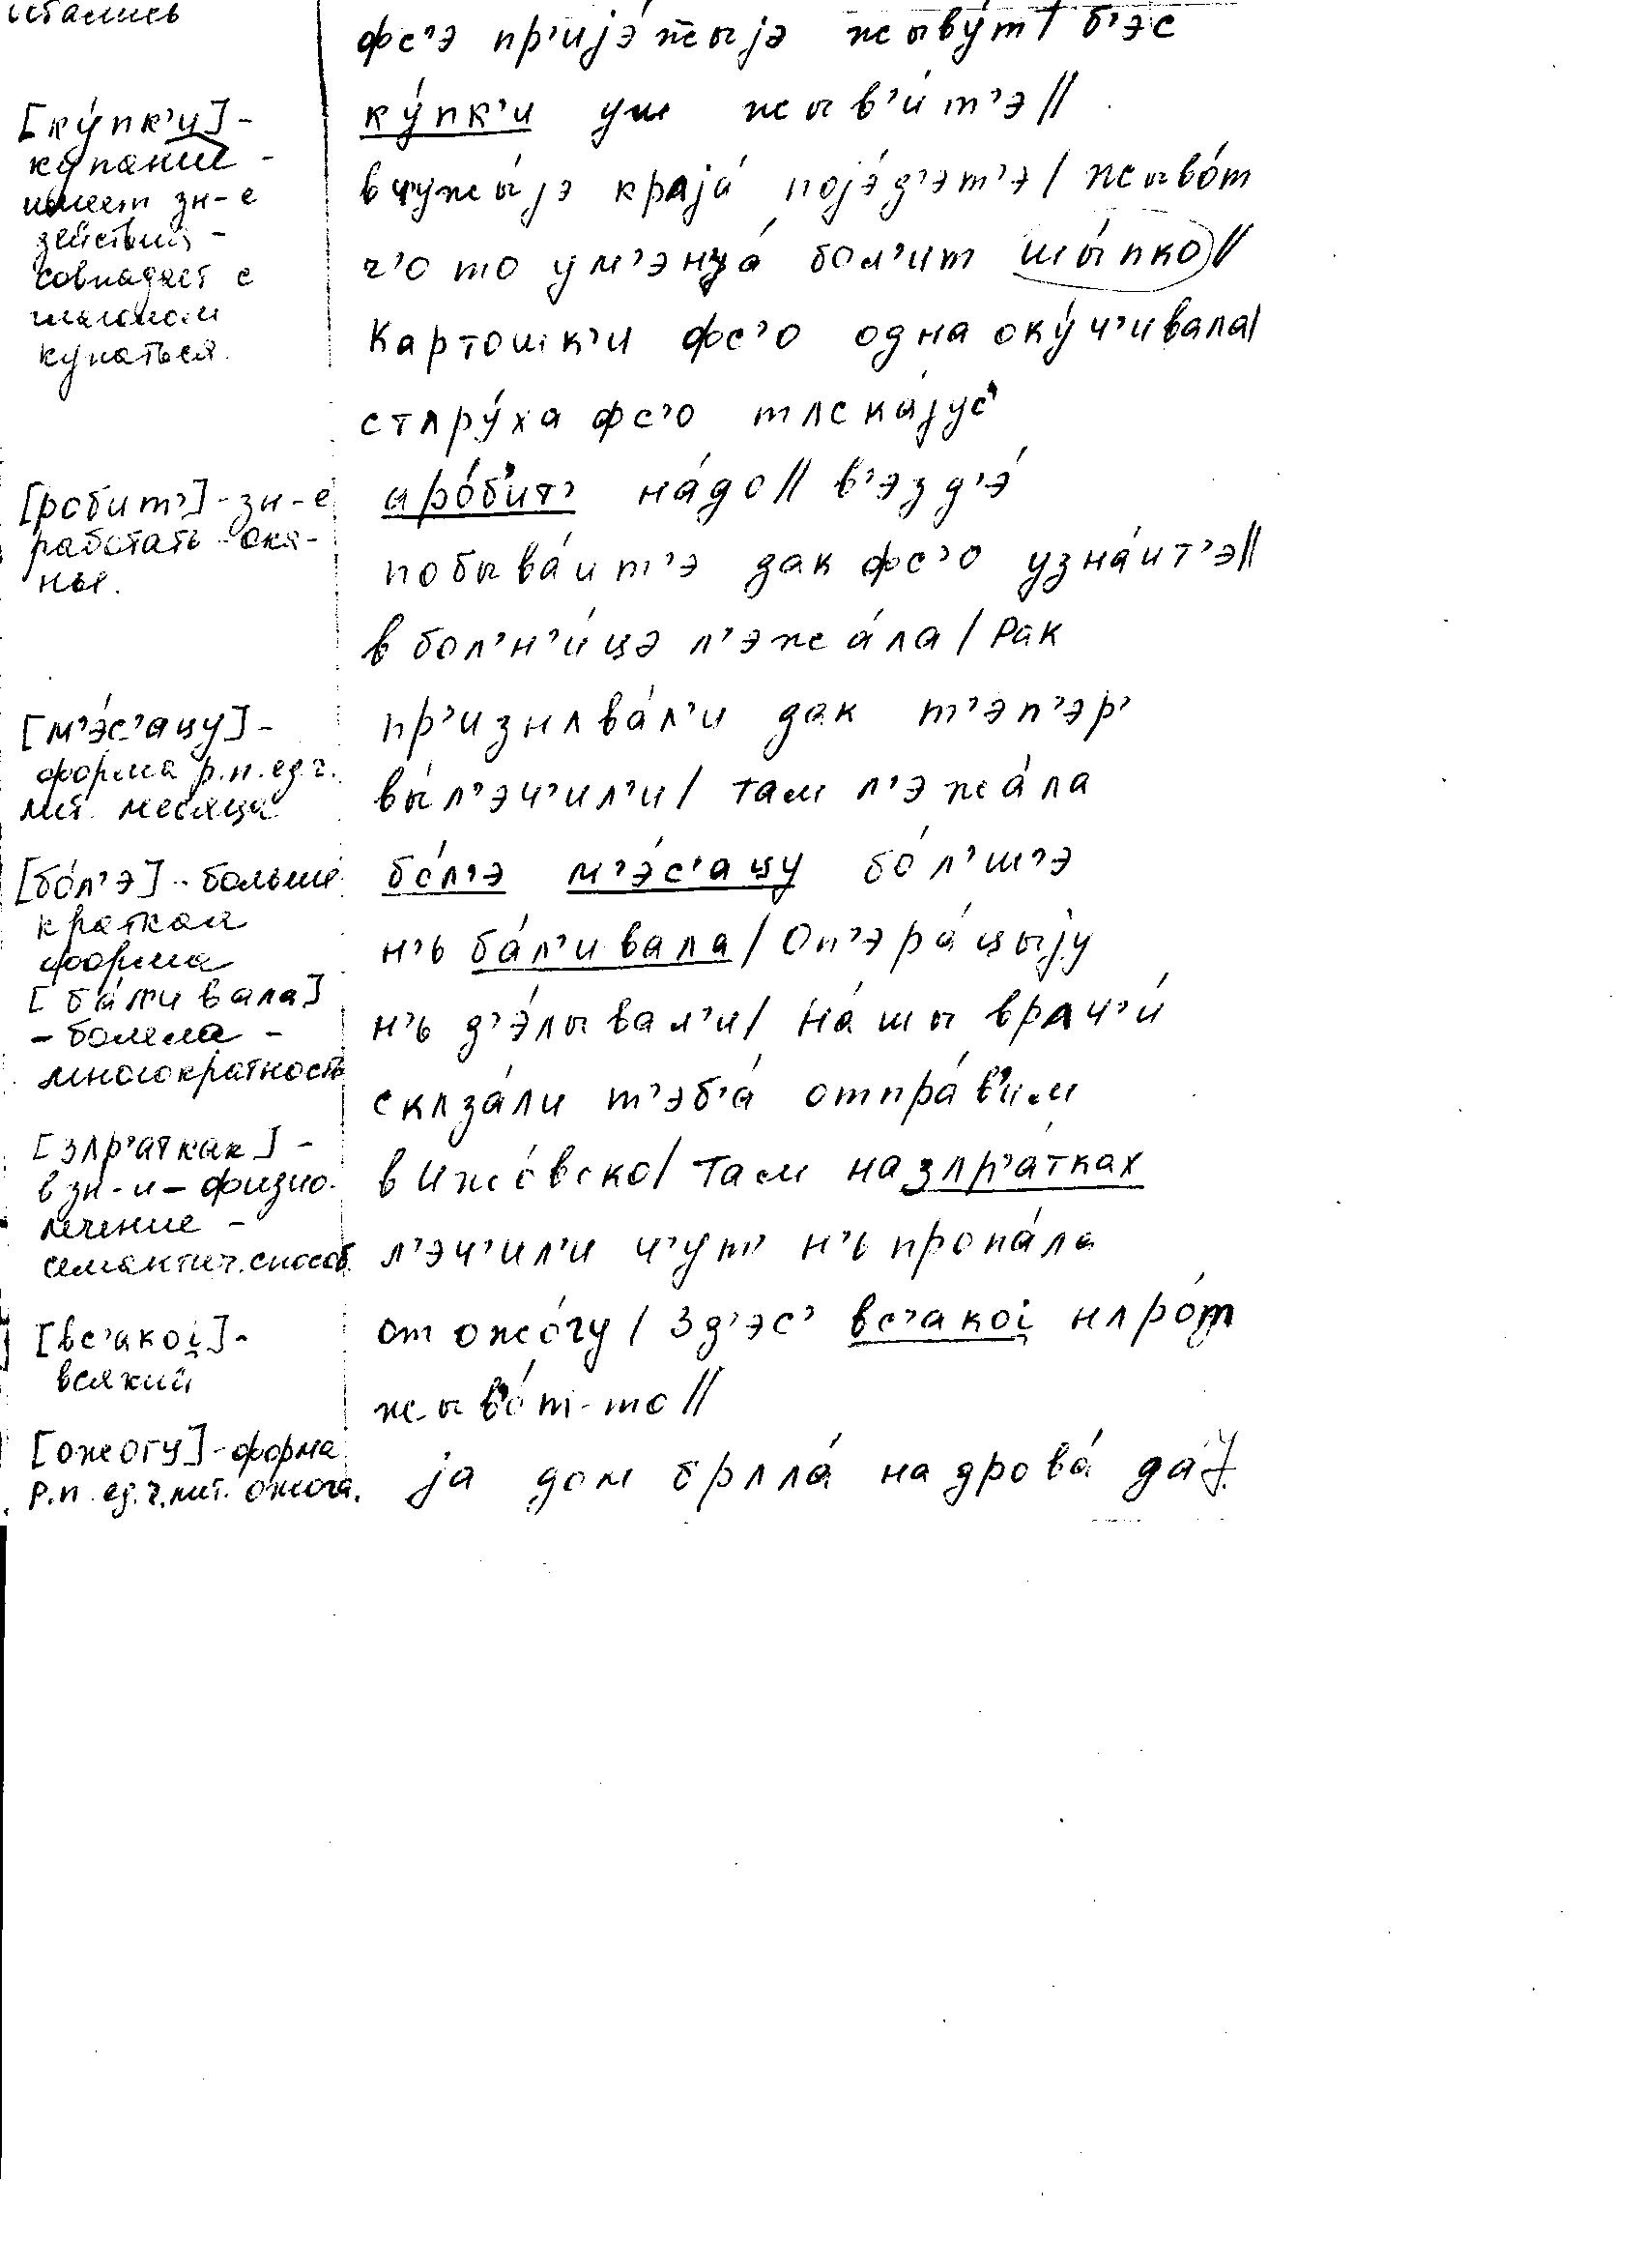 остались
[ку́пк'и]-
купание -
имеет зн-е
действия -
совпадает с
глаголом
купаться.
[робит']- зн-е
работать - ока-
нье.
[м'э́с'ацу]-
форма р.п.ед.ч.
лит. месяца
[бо́л'э] - больше
краткая
форма
[ба́л'ивала]
- болела -
многократность
[зʌр'атках] -
в зн-и - физио-
лечение -
семантич. способ.
[вс'акоi̯]-
всякий
[ожогу]- форма
р.п. ед.ч. лит. ожога.
фс'э пр'иjэ́жыjэ жыву́т/ б'эс
ку́пк'и уш жыв'и́т'э//
вчужы́jэ краjа́ поjэ́д'эт'э/ жыво́т
ч'ото ум'эн'а́ бол'ит шы́пко//
Картошк'и фс'о одна оку́ч'ивала/
стʌру́ха фс'о тʌска́jус'
аро́б'ит' на́до// в'эзд'э́
побыва́ит'э дак фс'о узна́ит'э//
в бол'н'и́цэ л'эжа́ла/ Рак
пр'изнʌва́л'и дак т'эп'эр'
вы́л'эч'ил'и/ там л'эжа́ла
бо́л'э м'э́с'ацу бо́л'ш'э
н'ь ба́л'ивала/ Оп'эра́цыjу
н'ь д'э́лывал'и/ На́шы врʌч'и́
скʌза́ли т'эб'а́ отпра́в'им
в Ижо́вско/ Там назʌр'а́тках
л'эч'ил'и ч'ут' н'ь пропа́ла
от ожо́гу/ Зд'эс' вс'акоi̯ нʌро́т
жыв'о́т-то//
jа дом брʌла́ на дрова́ да//